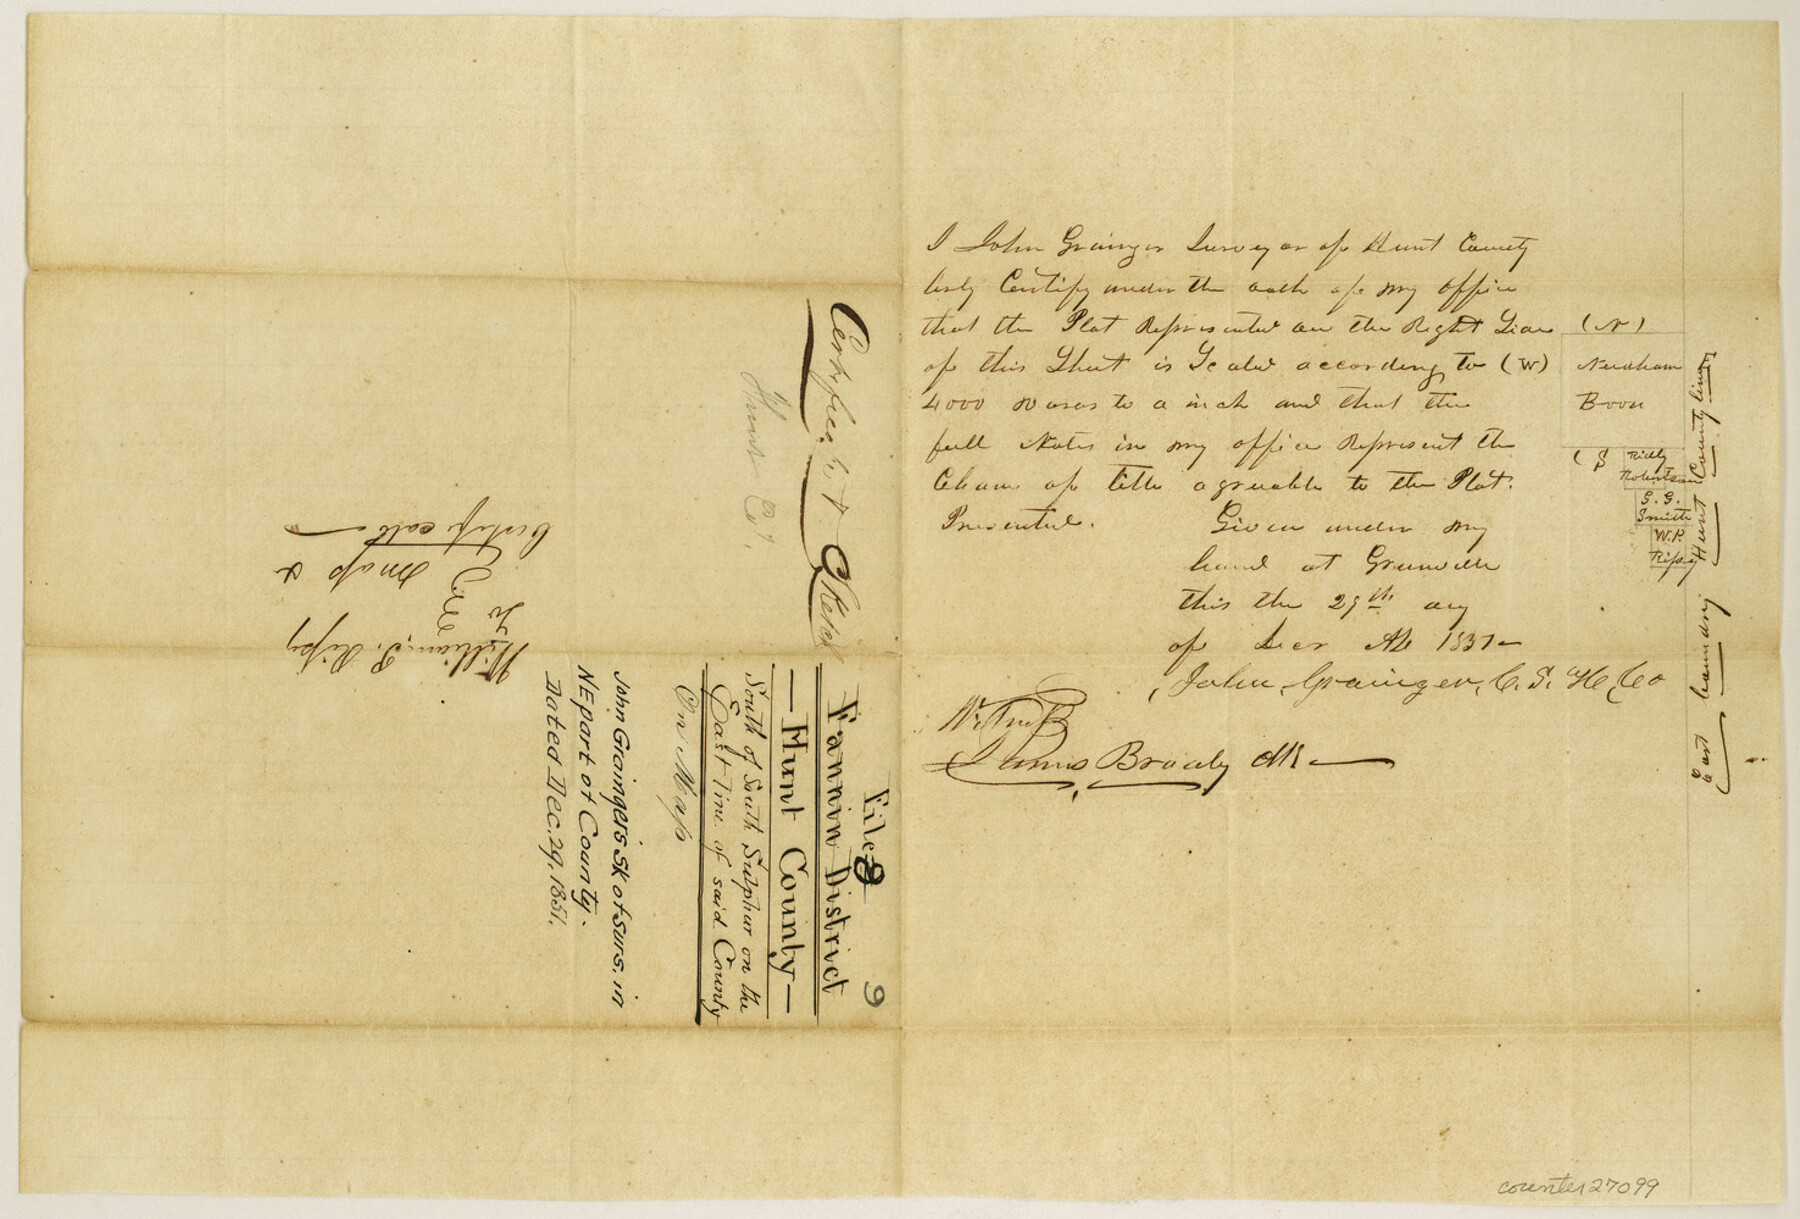 I John Grainger Surveyor of Hunt County
Certify under the oath of my office
that the Plat Represented on the Right
of this Sheet is Scaled according to
4000 varas to a inch and that the
Notes in my office Represent the
of title agreable to the Plat
Presented. Given under my
hand at Greenville
this the 29th
of Decr AD 1851
John Grainger, C. S. H. Co
Witness
James Brady
(N)
(W)
(S
Needham
Boon
Ridly
Robertson
G. G.
Smith
W. P.
Ripsy
East boundry Hunt County line
Certificate & Sketch
Hunt Co.
William P. Ripsy
To
map &
Certificate
File 9
9
Fannin District
— Hunt County —
South of South Sulphur on the
East line of said County
On Map
John Grainger's Sk of Surs. in
NE part of County.
Dated Dec. 29, 1851.
counter 27099